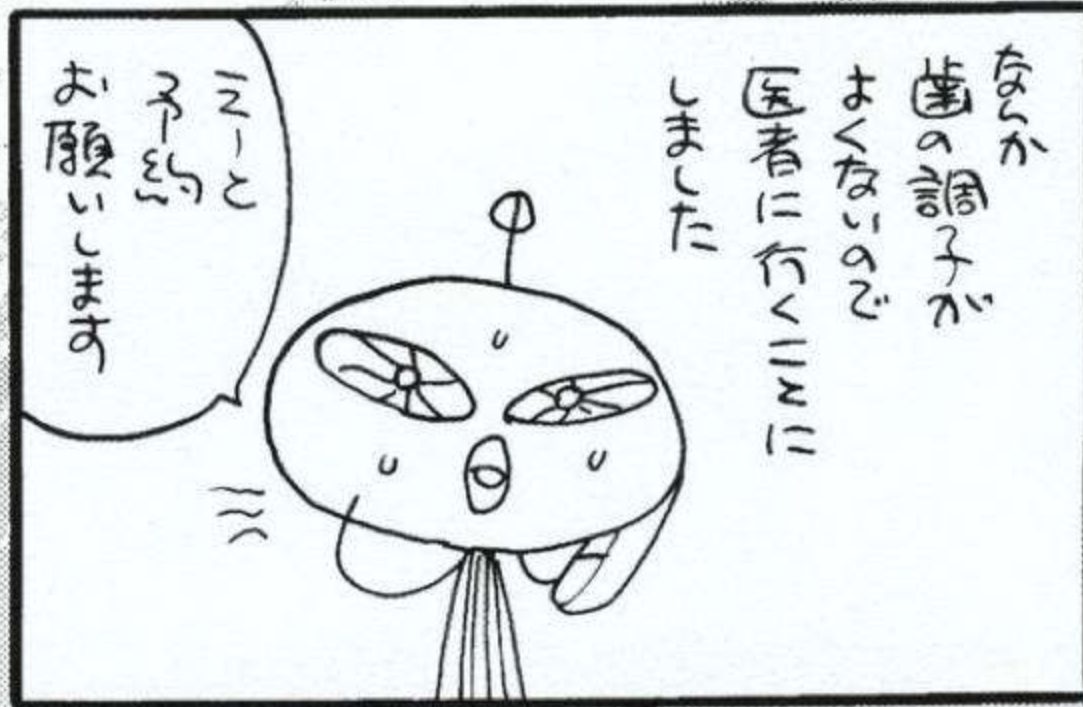 なんか
歯の調子が
よくないので
医者に行くことに
しました
えーと
予約
お願いします